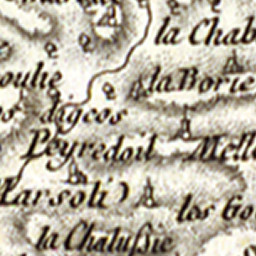 la Chab
oulie
la Borie
digeos
Peyredoil
Melle
Larsoli)
los Go
la Chalussie